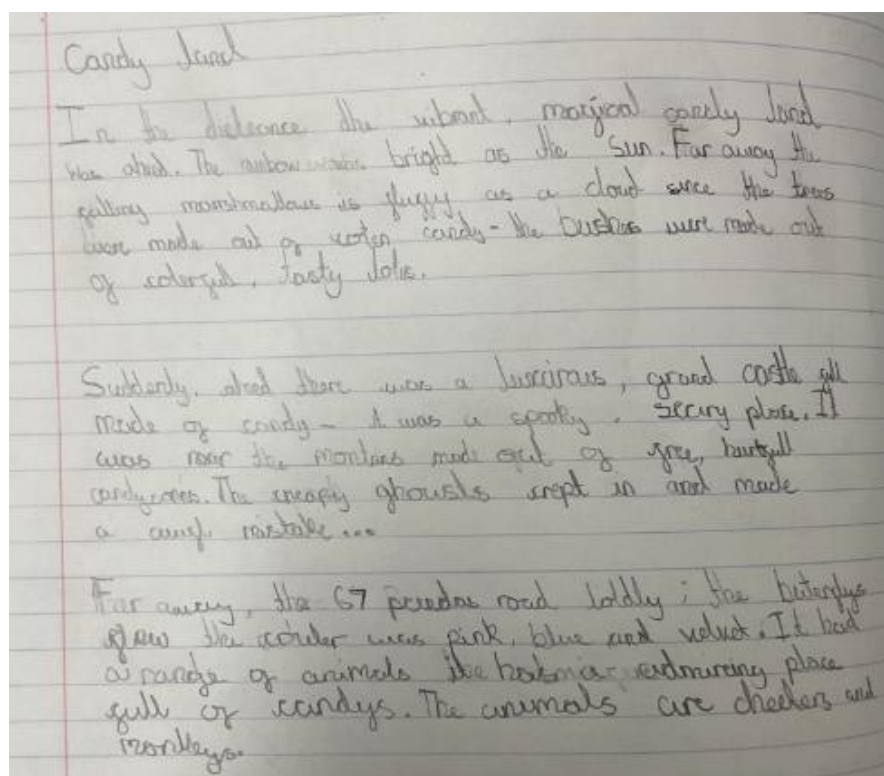 Candy land
In the distance the vibrant, magical candy land
was ahed. The rainbow was bright as the Sun. Far away the
falling marshmallows is fluffy as a cloud since the trees
were made out of coten candy - the bushes were made out
of colerfull, tasty lolis.
Suddenly, ahed there was a luxirous, grand castle all
made of candy - it was a spooky, scary place. It
was near the montans made out of free,
candycanes. The creapy ghousts crept in and made
a mistake...
Far away, the 67 road loldly; the buterflys
flew the was pink, blue and velvet. It had
a range of animals the place
full of candys. The animals are and
monkeys.